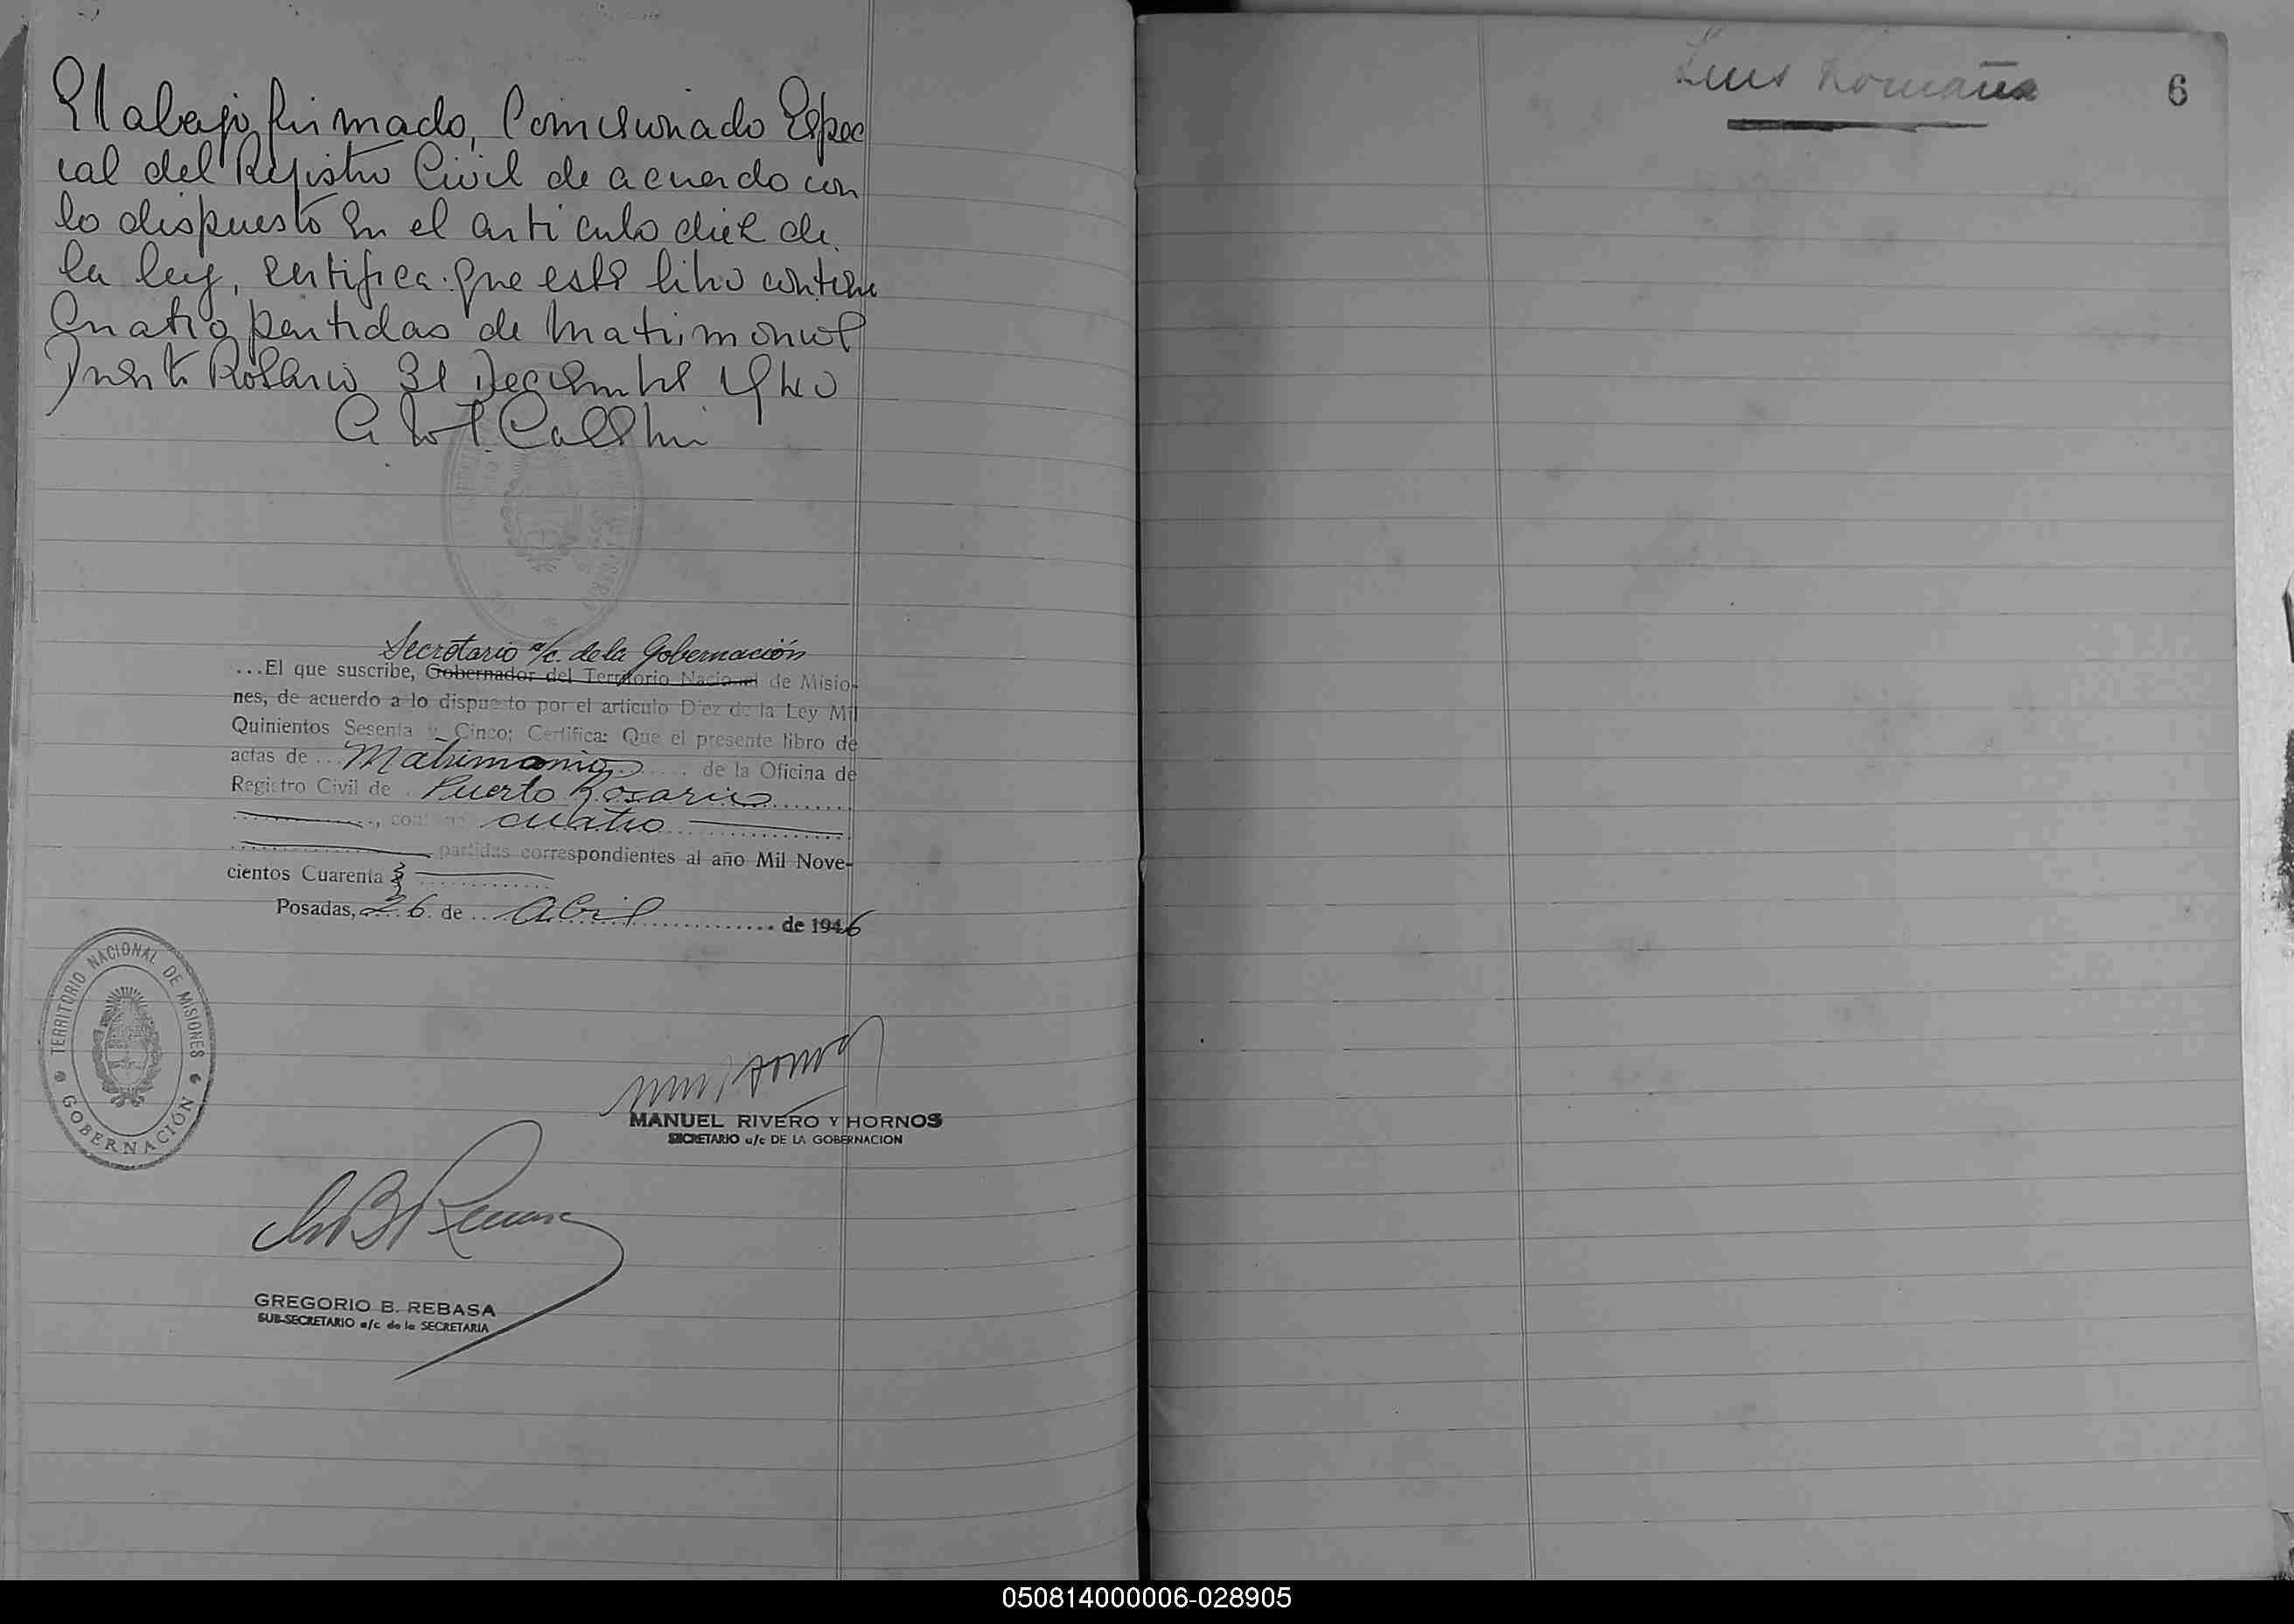 El abajo firmado, Comisionado Espec
ial del Registro Civil de acuerdo con
lo dispuesto en el articulo diez de
la ley, certifica: que este libro contiene
Cuatro partidas de Matrimonio
Puerto Rosario 31 Deciembre 1940
Secretario a/c. de la Gobernación
...El que suscribe, Gobernador del Territorio Nacional de Misio-
nes, de acuerdo a lo dispuesto por el artículo Diez de la Ley Mil
Quinientos Sesenta y Cinco; Certifica: Que el presente libro de
actas de ... Matrimonio ..... de la Oficina de
Registro Civil de . Puerto Rosario ........
, contiene cuatro
partidas correspondientes al año Mil Nove-
cientos Cuarenta
Posadas, 26 de ... Abril ............... de 1946
TERRITORIO NACIONAL DE MISIONES
GOBERNACIÓN
MANUEL RIVERO Y HORNOS
SECRETARIO a/c DE LA GOBERNACION
GREGORIO B. REBASA
SUB-SECRETARIO a/c de la SECRETARIA
Luis Romaña
6
050814000006-028905